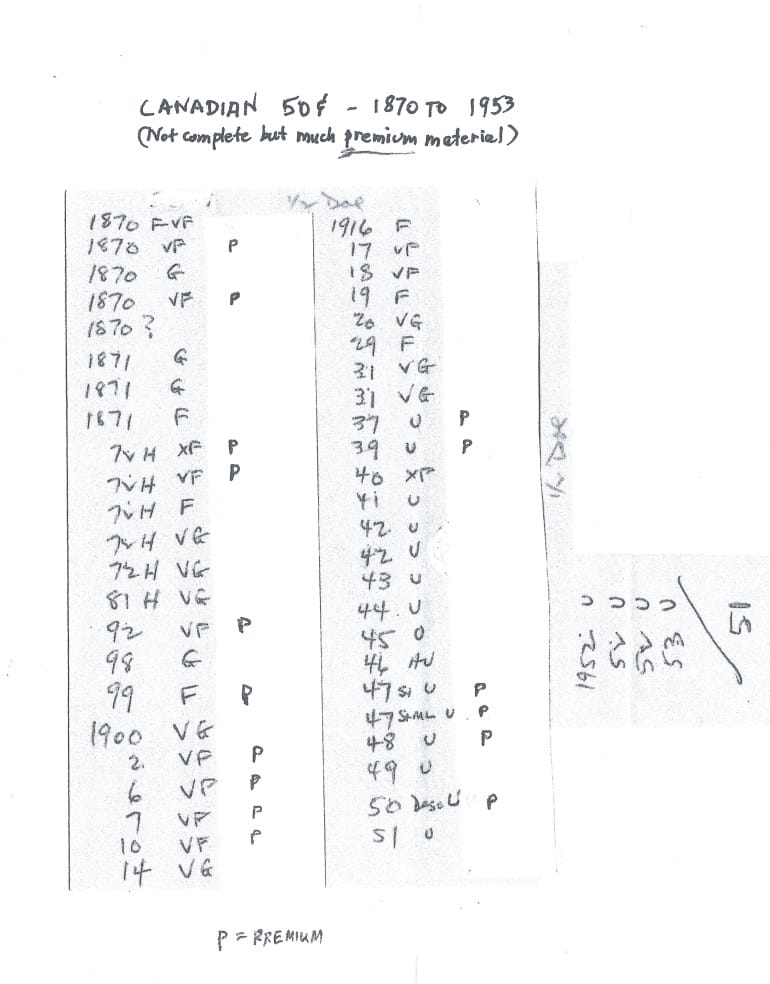 CANADIAN 50¢ - 1870 TO 1953
(Not complete but much premium material)
1870 F-VF
1870 VF P
1870 G
1870 VF P
1870 ?
1871 G
1871 G
1871 F
72 H XF P
72 H VF P
72 H F
72 H VG
72 H VG
81 H VG
92 VF P
98 G
99 F P
1900 VG
2 VF P
6 VF P
7 VF P
10 VF P
14 VG
1/2 Dol
1916 F
17 VF
18 VF
19 F
20 VG
29 F
31 VG
31 VG
37 U P
39 U P
40 XF
41 U
42 U
42 U
43 U
44 U
45 U
46 AU
47 U P
47 U P
48 U P
49 U
50 U P
51 U
1/2 Dol
15
53 U
52 U
52 U
1952 U
P = PREMIUM